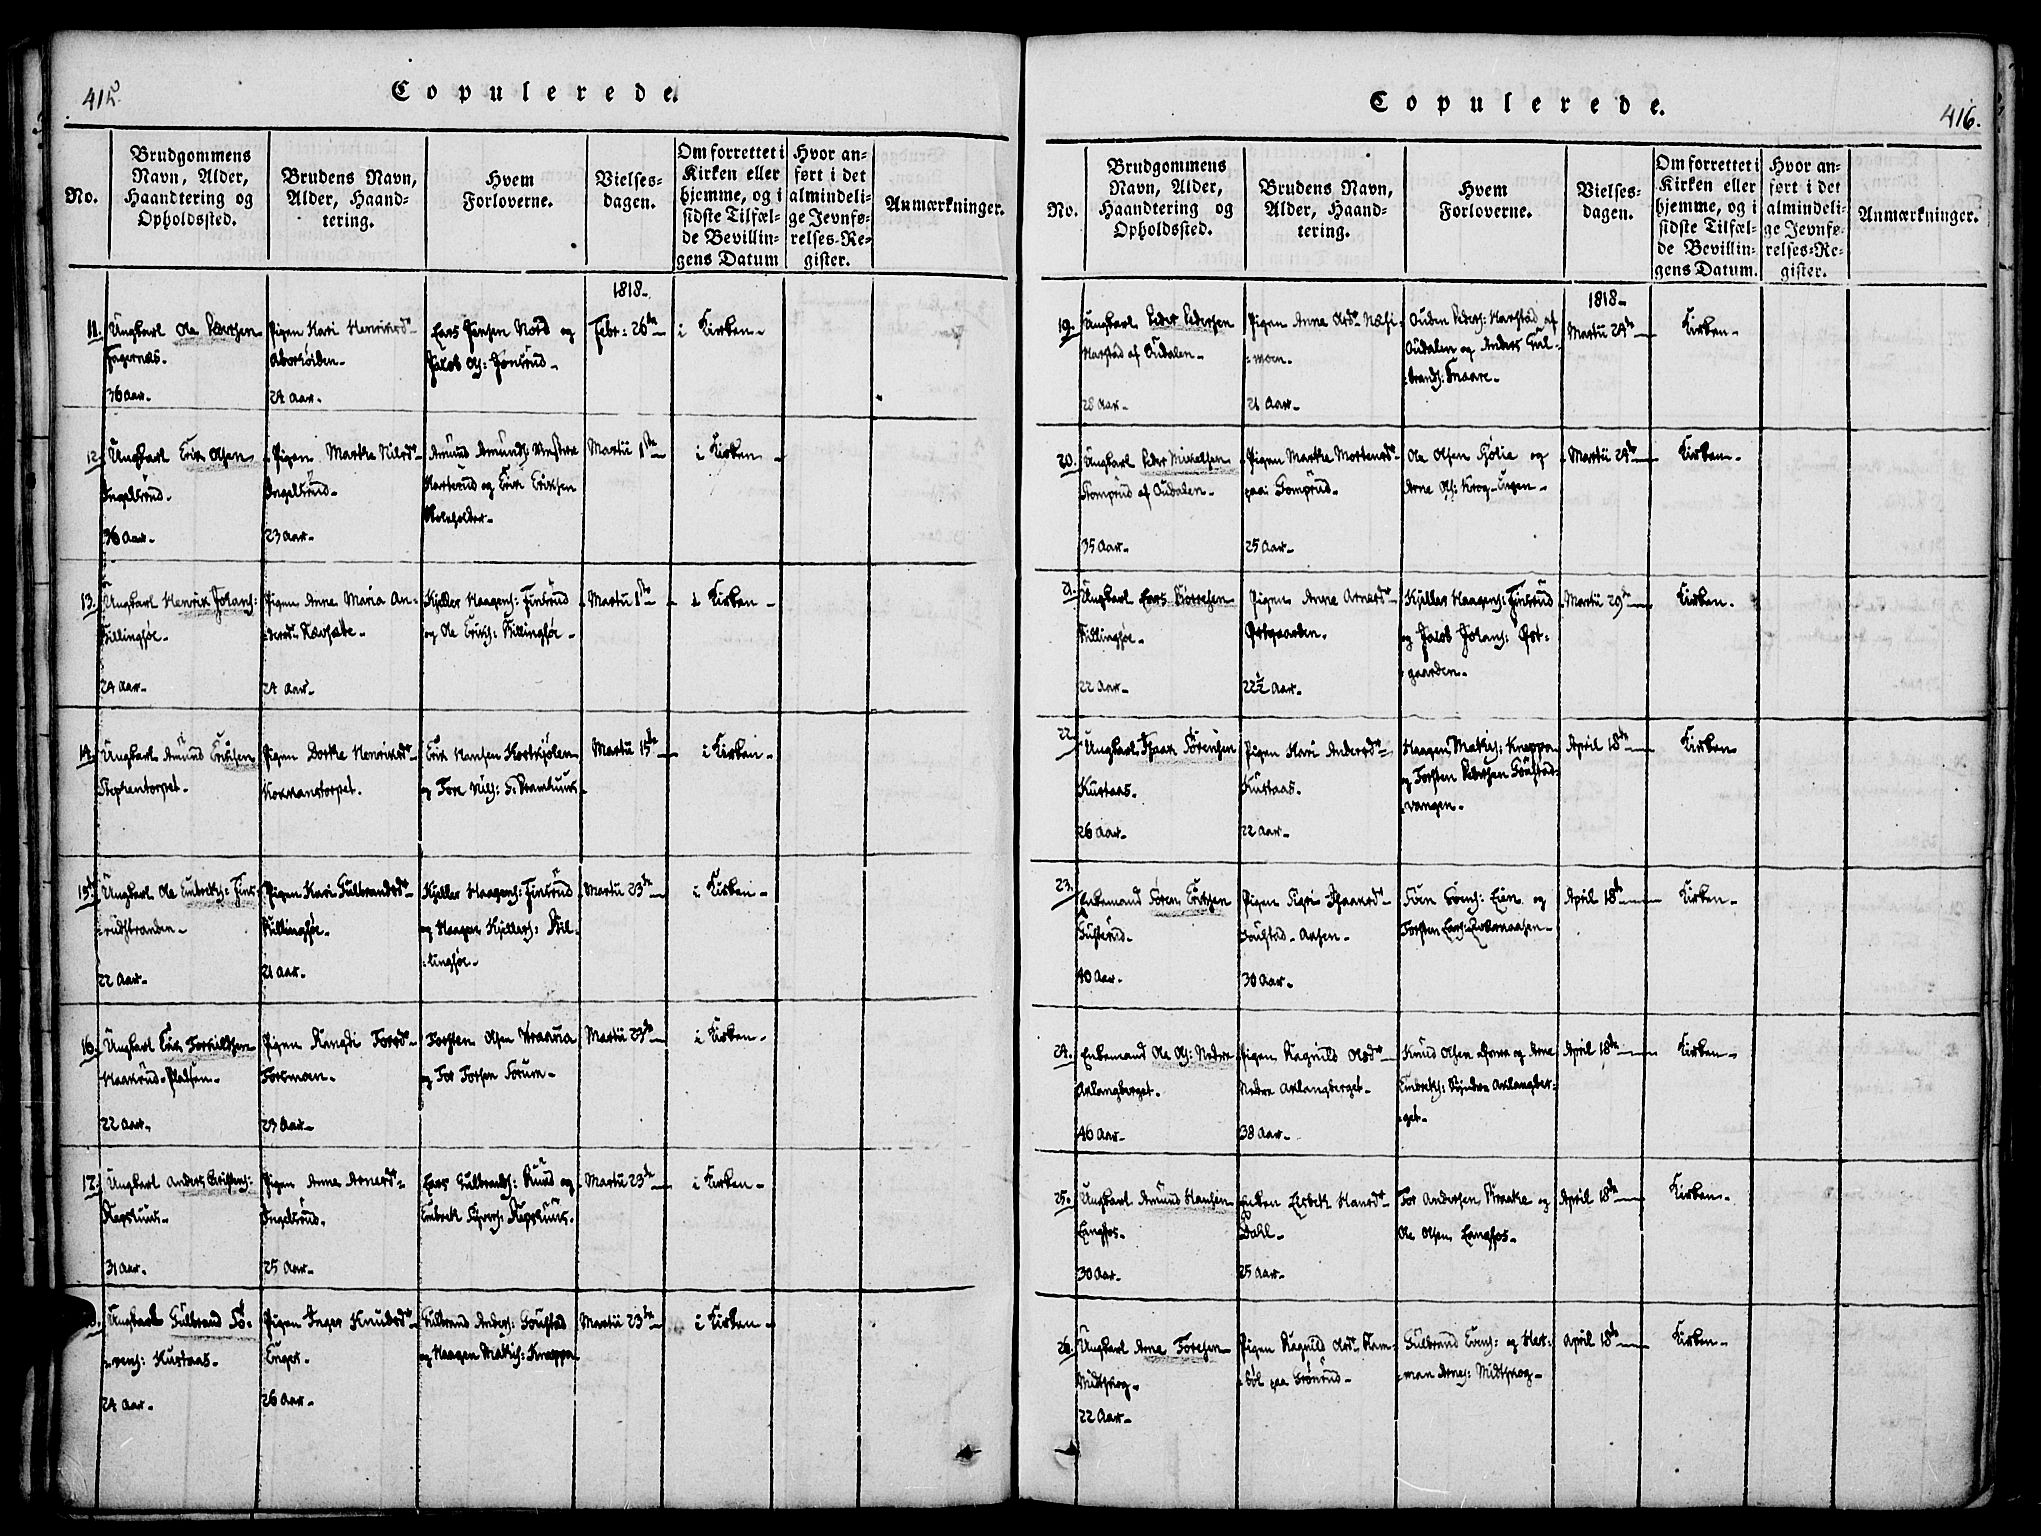 415.
Copulerede.
No.
Brudgommens
Navn, Alder,
Haandtering og
Opholdssted.
Brudens Navn,
Alder, Haand-
tering.
Hvem
Forloverne.
Vielses-
dagen.
Om forrettet i
Kirken eller
hjemme, og i
sidste Tilfæl-
de Bevillin-
gens Datum
Hvor an-
ført i det
almindeli-
ge Jevnfø-
relses-Re-
gister.
Anmærkninger.
1818.
11. Ungkarl Ole Pedersen
Fagernæs.
36 Aar.
Pigen Kari Henriksd
24 Aar.
Lars Jensen Nord og
Jacob Ols: Jonsrud
Febr: 26de
i Kirken
12. Ungkarl Erik Olsen
Ingelsrud.
36 Aar.
Pigen Marthe Nilsd
Ingelsrud.
23 Aar.
Amund Amunds: Vestre
Harterud og Erik Eriksen
Martii 1ste
i Kirken
13. Ungkarl Henrik Johans:
Killingsøe.
24 Aar.
Pigen Anne Maria An-
24 Aar.
Kjeller Haagens: Finsrud
og Ole Eriks: Killingsøe
Martii 1ste
i Kirken
14. Ungkarl Amund Eriksen
Stephentorpet.
Pigen Dorthe Henriksd
Kormanstorpet.
Erik Hansen Kortkjølen
og Tore Nils:
Martii 15de
i Kirken
15. Ungkarl Ole Embrets: Fins-
rudstranden
22 Aar.
Pigen Kari Gulbrandsd
Killingsøe.
21 Aar.
Kjeller Haagens: Finsrud
og Haagen Kjellers: Kil-
lingsøe.
Martii 23de
i Kirken
16. Ungkarl Erik Torkildsen
Haakrud-Pladsen
22 Aar.
Pigen Rangdi Torsd
Torsmoen.
23 Aar.
Torsten Olsen
og Tor Torsen
Martii 23de
i Kirken
17. Ungkarl Anders Cristens:
31 Aar.
Pigen Anne Arnesd
Ingelsrud.
25 Aar.
Lars Gulbrands: Ruud og
Embret Syvers:
Martii 23de
i Kirken
18. Ungkarl Gulbrand Sö-
rens: Kustaas.
24 Aar.
Pigen Inger Knudsd
Enger.
26 Aar.
Gulbrand Anders: Goustad
og Haagen Mathis: Knappa
Martii 23de
i Kirken
Copulerede.
416.
No.
Brudgommens
Navn, Alder,
Haandtering og
Opholdssted.
Brudens Navn,
Alder, Haand-
tering.
Hvem
Forloverne.
Vielses-
dagen.
Om forrettet i
Kirken eller
hjemme, og i
sidste Tilfæl-
de Bevillin-
gens Datum.
Hvor an-
ført i det
almindeli-
ge Jevnfø-
relses-Re-
gister.
Anmærkninger.
1818
19. Ungkarl Peder Pedersen
Harstad af Oudalen
28 Aar
Pigen Anne Olsd Næsi-
moen.
21 Aar
Ouden Peders: Harstad af
Oudalen og Anders Gul-
brands: Snaare
Martii 24de
Kirken
20. Ungkarl Peder Mikelsen
Stomprud af Oudalen
35 Aar
Pigen Marthe Mortensd
paa Gomprud.
25 Aar
Ole Olsen Hølie og
Arne Ols: Krog-Ungen
Martii 29de
Kirken
21. Ungkarl Lars Börresen
Killingsøe.
22 Aar
Pigen Anne Arnesd
Østgaarden.
22½ Aar
Kjeller Haagens: Finsrud
og Jacob Johans: Øst-
gaarden
Martii 29de
Kirken
22. Ungkarl Isaac Sörensen
Kustaas.
26 Aar
Pigen Kari Andersd
Kustaas.
22 Aar
Haagen Mathis: Knappa
og Torsten Pedersen Goustad-
vangen
April 18de
Kirken
23. Enkemand Sören Eriksen
40 Aar
Pigen Sigri Isaacsd
Goustad-Aasen
30 Aar
Sven Göens: Eien og
Torsten Lars:
April 18de
Kirken
24. Enkemand Ole Ols: Nedre
Aklangberget.
46 Aar
Pigen Ragnild Olsd
Nedre Aklangberget
38 Aar
Knud Olsen og Arne
Embrets: Søndre Aklangber-
get
April 18de
Kirken
25. Ungkarl Amund Hansen
Langfos.
30 Aar
Enken Lisbeth Hansd
Dahl
25 Aar
Tor Andersen Braate og
Ole Olsen Langfos
April 18de
Kirken
26. Ungkarl Arne Toresen
Midtskog
22 Aar
Pigen Ragnild Olsd
paa Grönrud
Gulbrand Evens: og Her-
man Arnes: Midtskog
April 18de
Kirken